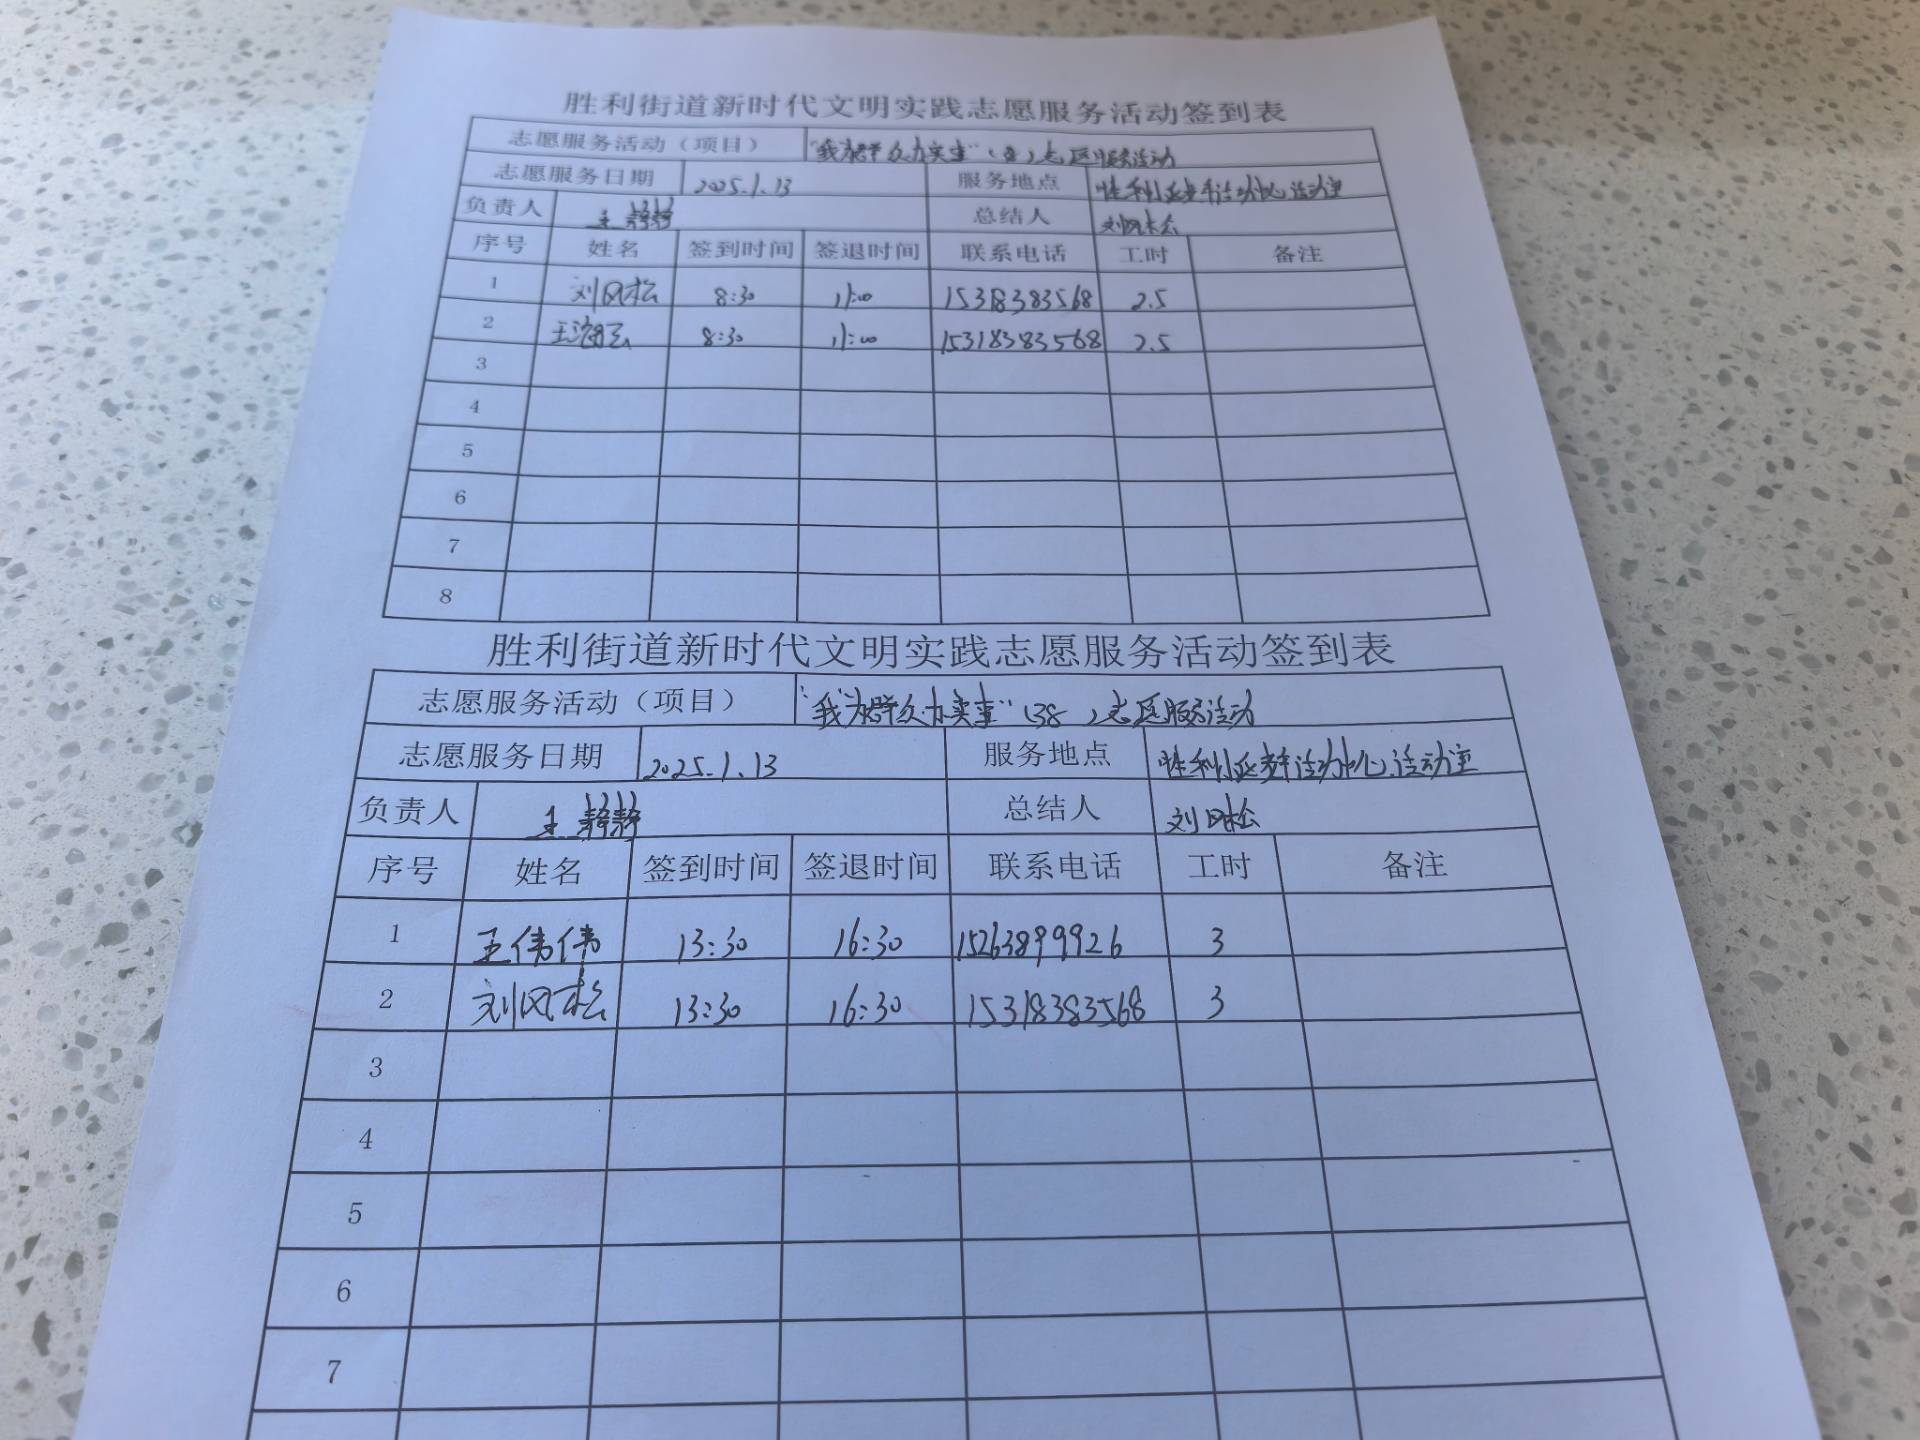 胜利街道新时代文明实践志愿服务活动签到表
志愿服务活动（项目） "我为群众办实事" 志愿服务活动
志愿服务日期 2025.1.13 服务地点 胜利小区老年活动中心活动室
负责人 王静静 总结人 刘风松
序号 姓名 签到时间 签退时间 联系电话 工时 备注
1 刘风松 8:30 11:00 15318383568 2.5
2 8:30 11:00 15318383568 2.5
3
4
5
6
7
8
胜利街道新时代文明实践志愿服务活动签到表
志愿服务活动（项目） "我为群众办实事"（38）志愿服务活动
志愿服务日期 2025.1.13 服务地点 胜利小区老年活动中心活动室
负责人 王静静 总结人 刘风松
序号 姓名 签到时间 签退时间 联系电话 工时 备注
1 王伟伟 13:30 16:30 15263899926 3
2 刘风松 13:30 16:30 15318383568 3
3
4
5
6
7